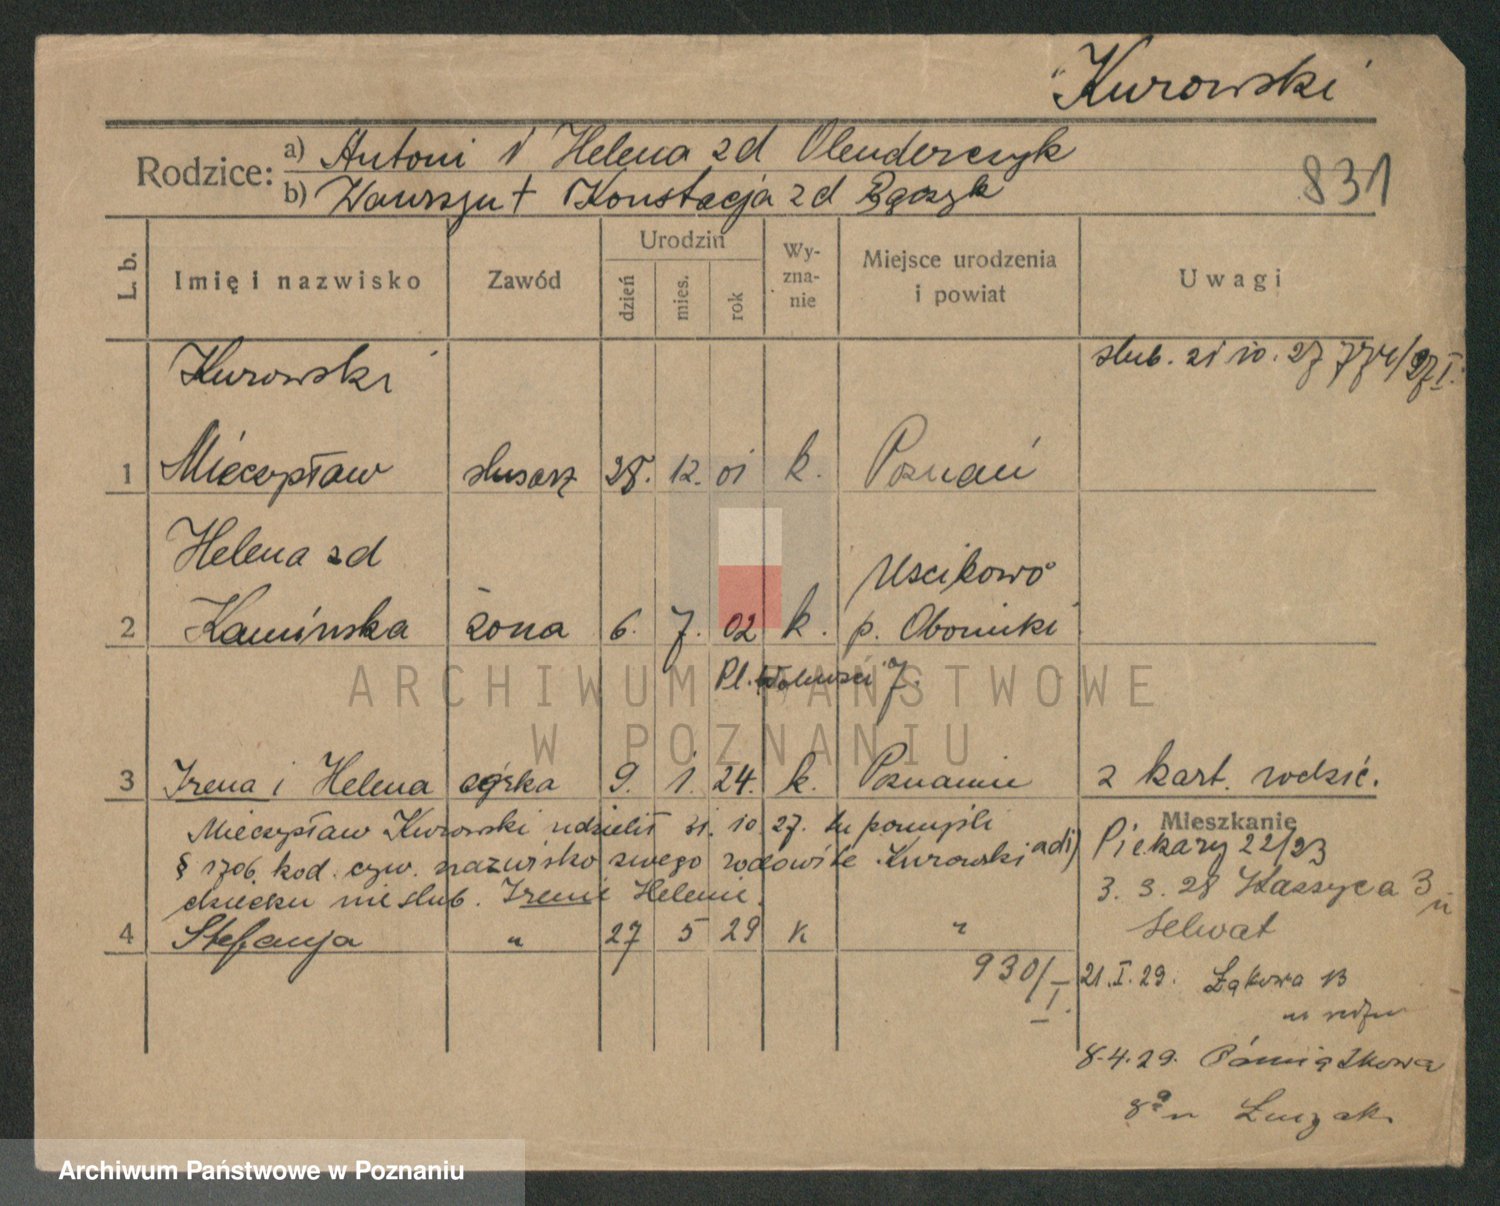 Kurowski
Rodzice: a) Antoni i Helena zd Olenderczyk
b) Wawrzyn + Konstacja zd Bączyk
831
L. b.
Imię i nazwisko
Zawód
Urodzin
dzień mies. rok
Wy-
zna-
nie
Miejsce urodzenia
i powiat
Uwagi
Kurowski
ślub. 21 10. 27
1 Mieczysław ślusarz 28. 12. 01 k. Poznań
Helena zd
Uscikowo
2 Kamińska żona 6. 7. 02 k. p. Oborniki
Pl. Wolności 7.
ARCHIWUM PAŃSTWOWE
W POZNANIU
3 Irena i Helena córka 9. 1. 24. k. Poznaniu z kart. rodzić.
Mieczysław Kurowski udzielił 31. 10. 27. tu pomyśli
§ 1706 kod. cyw. nazwisko swego Kurowski
dziecku nieślub. Irenie Helenie.
4 Stefanja " 27 5 29 k "
930/I.
Mieszkanie
Piekary 22/23
3. 3. 28 3
Selwat
21.I.29. Łąkowa 13
8.4.29. Pamiątkowa
Łuczak
Archiwum Państwowe w Poznaniu